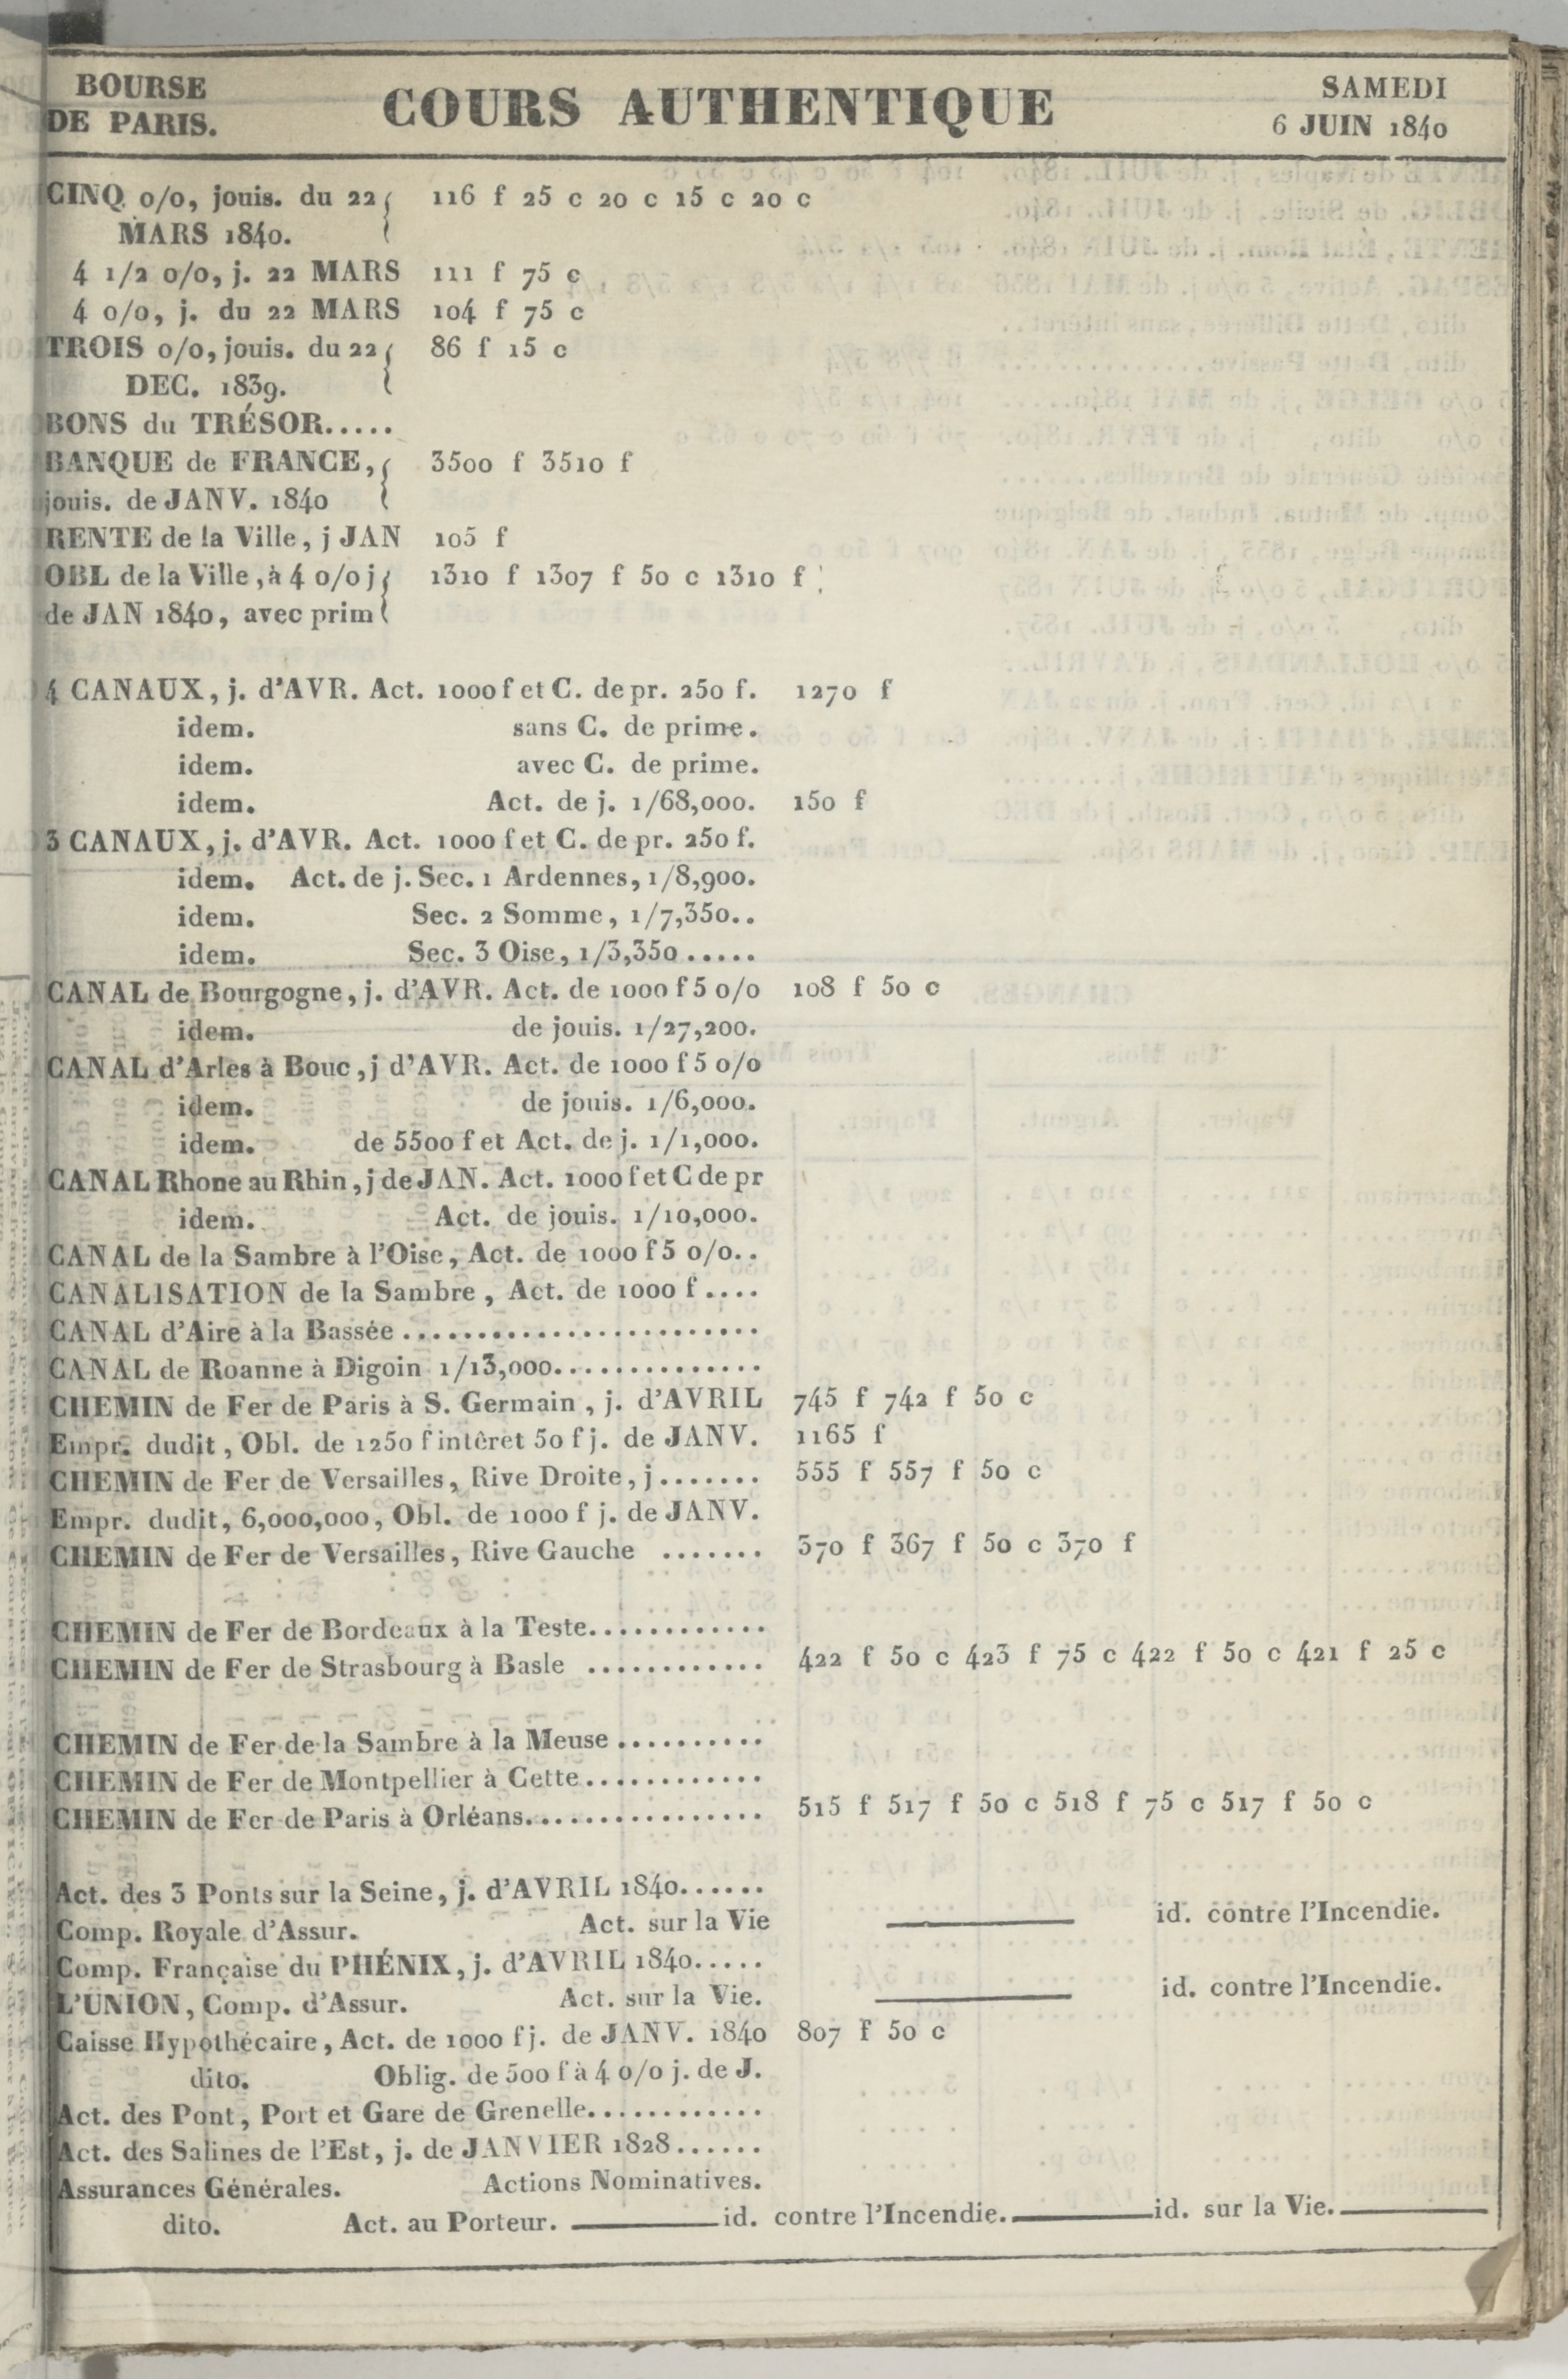 BOURSE
DE PARIS.
COURS AUTHENTIQUE
SAMEDI
6 JUIN 1840
CINQ o/o, jouis. du 22 116 f 25 c 20 c 15 c 20 c
MARS 1840.
4 1/2 o/o, j. 22 MARS 111 f 75 c
4 o/o, j. du 22 MARS 104 f 75 c
TROIS o/o, jouis. du 22 86 f 15 c
DEC. 1839.
BONS du TRÉSOR.....
BANQUE de FRANCE, 3500 f 3510 f
jouis. de JANV. 1840
RENTE de la Ville, j JAN 105 f
OBL de la Ville, à 4 o/o j 1310 f 1307 f 50 c 1310 f
de JAN 1840, avec prim
4 CANAUX, j. d'AVR. Act. 1000 f et C. de pr. 250 f. 1270 f
idem. sans C. de prime.
idem. avec C. de prime.
idem. Act. de j. 1/68,000. 150 f
3 CANAUX, j. d'AVR. Act. 1000 f et C. de pr. 250 f.
idem. Act. de j. Sec. 1 Ardennes, 1/8,900.
idem. Sec. 2 Somme, 1/7,350..
idem. Sec. 3 Oise, 1/3,350.....
CANAL de Bourgogne, j. d'AVR. Act. de 1000 f 5 o/o 108 f 50 c
idem. de jouis. 1/27,200.
CANAL d'Arles à Bouc, j d'AVR. Act. de 1000 f 5 o/o
idem. de jouis. 1/6,000.
idem. de 5500 f et Act. de j. 1/1,000.
CANAL Rhone au Rhin, j de JAN. Act. 1000 f et C de pr
idem. Act. de jouis. 1/10,000.
CANAL de la Sambre à l'Oise, Act. de 1000 f 5 o/o..
CANALISATION de la Sambre, Act. de 1000 f....
CANAL d'Aire à la Bassée........................
CANAL de Roanne à Digoin 1/13,000..............
CHEMIN de Fer de Paris à S. Germain, j. d'AVRIL 745 f 742 f 50 c
Empr. dudit, Obl. de 1250 f intêret 50 f j. de JANV. 1165 f
CHEMIN de Fer de Versailles, Rive Droite, j....... 555 f 557 f 50 c
Empr. dudit, 6,000,000, Obl. de 1000 f j. de JANV.
CHEMIN de Fer de Versailles, Rive Gauche ....... 370 f 367 f 50 c 370 f
CHEMIN de Fer de Bordeaux à la Teste............
CHEMIN de Fer de Strasbourg à Basle ............ 422 f 50 c 423 f 75 c 422 f 50 c 421 f 25 c
CHEMIN de Fer de la Sambre à la Meuse..........
CHEMIN de Fer de Montpellier à Cette............
CHEMIN de Fer de Paris à Orléans................ 515 f 517 f 50 c 518 f 75 c 517 f 50 c
Act. des 3 Ponts sur la Seine, j. d'AVRIL 1840......
Comp. Royale d'Assur. Act. sur la Vie id. contre l'Incendie.
Comp. Française du PHÉNIX, j. d'AVRIL 1840.....
L'UNION, Comp. d'Assur. Act. sur la Vie. id. contre l'Incendie.
Caisse Hypothécaire, Act. de 1000 f j. de JANV. 1840 807 f 50 c
dito. Oblig. de 500 f à 4 o/o j. de J.
Act. des Pont, Port et Gare de Grenelle............
Act. des Salines de l'Est, j. de JANVIER 1828......
Assurances Générales. Actions Nominatives.
dito. Act. au Porteur. id. contre l'Incendie. id. sur la Vie.